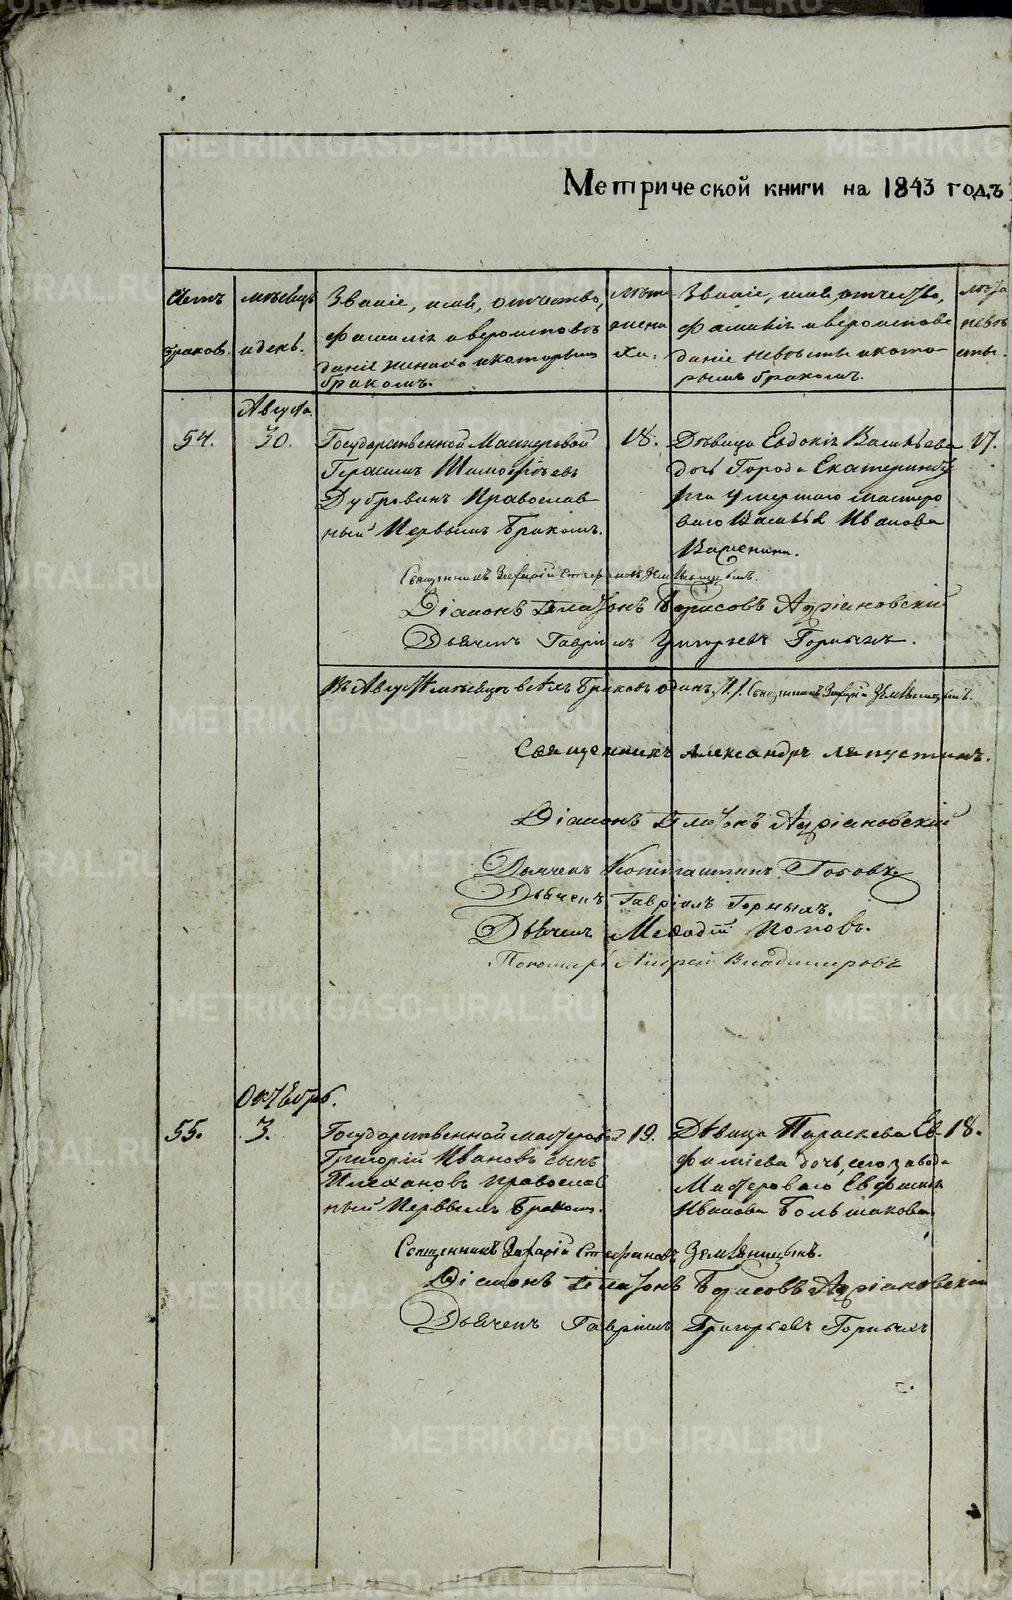 Метрической книги на 1843 годъ
Счетъ браковъ.
мѣсяцъ и день.
Званіе, имя, отчество,
фамилія и вероисповѣ
даніе жениха и которымъ
бракомъ.
лѣта
жени
ха.
Званіе, имя, отчество,
фамилія и вероисповѣ
даніе невѣсты и кото
рымъ бракомъ.
лѣта
невѣ
сты.
Августа
54.
30.
Государственной Мастеровой
Герасимъ Тимофѣевъ
Дубровинъ Православ
ный Первымъ Бракомъ.
18.
Дѣвица Евдокія Васильева
дочь Города Екатеринбу
рга умершаго мастеро
ваго Василья Иванова
17.
Священникъ Захарій Стефановъ Земляницынъ.
Діаконъ Платонъ Борисовъ Адріановскій
Дьячекъ Гавріилъ Григорьевъ Горныхъ.
Въ Августѣ мѣсяцѣ всѣхъ Браковъ одинъ /1/. Священникъ Захарій Земляницынъ.
Священникъ Александръ Ляпустинъ.
Діаконъ Платонъ Адріановскій
Дьячекъ Константинъ Поповъ
Дьячекъ Гавріилъ Горныхъ.
Дьячекъ Мефодій Поповъ.
Пономарь Андрей Владимировъ
Октябрь.
55.
3.
Государственной мастеровой
Григорій Ивановъ сынъ
Плехановъ Православ
ный Первымъ Бракомъ.
19.
Дѣвица Параскева Ев
фимiева дочь, сего завода
Мастероваго Евфимія
Иванова Большакова
18.
Священникъ Захарій Стефановъ Земляницынъ.
Діаконъ Платонъ Борисовъ Адріановскій
Дьячекъ Гавріилъ Григорьевъ Горныхъ
METRIKI.GASO-URAL.RU